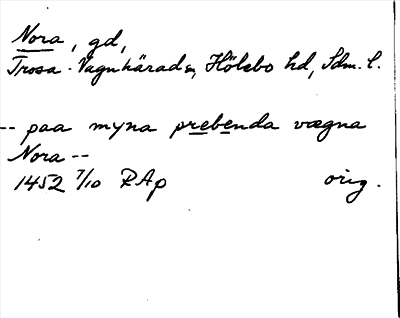 Nora, gd,
Trosa-Vagnhärads, Hölebo hd, Sdm. l.
-- paa myna prebenda vægna
Nora --
1452 7/10 RAp orig.